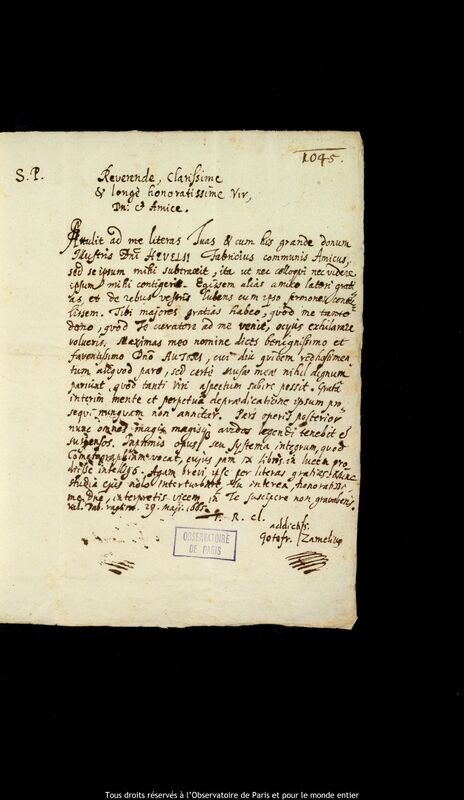 1045.
S.P. Reverende, Clarissime
& longè honoratissime Vir,
Dn: & Amice.
Attulit ad me literas Tuas & cum his grande donum
Illustris Dni HEVELII Fabricius communis Amicus,
sed se ipsum mihi subtraxit, ita ut nec colloqui nec videre
ipsum mihi contigerit. Egissem alias amico latori grati
as, et de rebus vestris lubens cum ipso sermones
Tibi majores gratias habeo, quod me tanto
dono, quod Te curatore ad me venit, ocyus exhilarare
volueris. Maximas meo nomine dices benignissimo et
faventissimo Dno AUTORI, cui diu quidem
tum aliquod paro, sed certè Musae meae nihil dignum
pariunt, quod tanti viri aspectum subire possit. Grata
interim mente et perpetua depraedicatione ipsum pro
sequi nunquam non annitar. Pars operis posterior
nunc omnes magis magisque avidos legendi tenebit et
suspensos. Inprimis opus seu systema integrum, quod
Cometographiam vocat, cujus jam IX libros in lucem pro
diisse intelligo. Agam brevi ipse per literas gratias,
studia ejus nolo interturbare. Tu interea, honoratiss.
me Dne, interpretis vicem in Te suscipere non gravaberis.
Vale. Dab. raptim. 29. Maji. 1665.
T. R. Cl.
addictiss.
Gotofr. Zamelius
OBSERVATOIRE
DE PARIS
Tous droits réservés à l'Observatoire de Paris et pour le monde entier